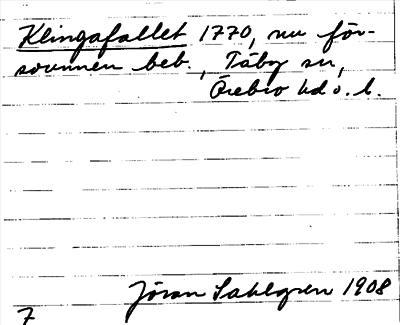 Klingafallet 1770, nu för-
svunnen beb., Täby sn,
Örebro hd o. l.
Jöran Sahlgren 1908
7